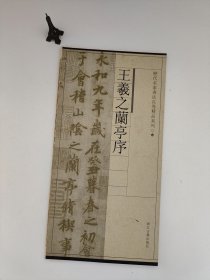 王羲之蘭亭序
永和九年歲在癸丑暮春之初
于會稽山陰之蘭亭脩稧事